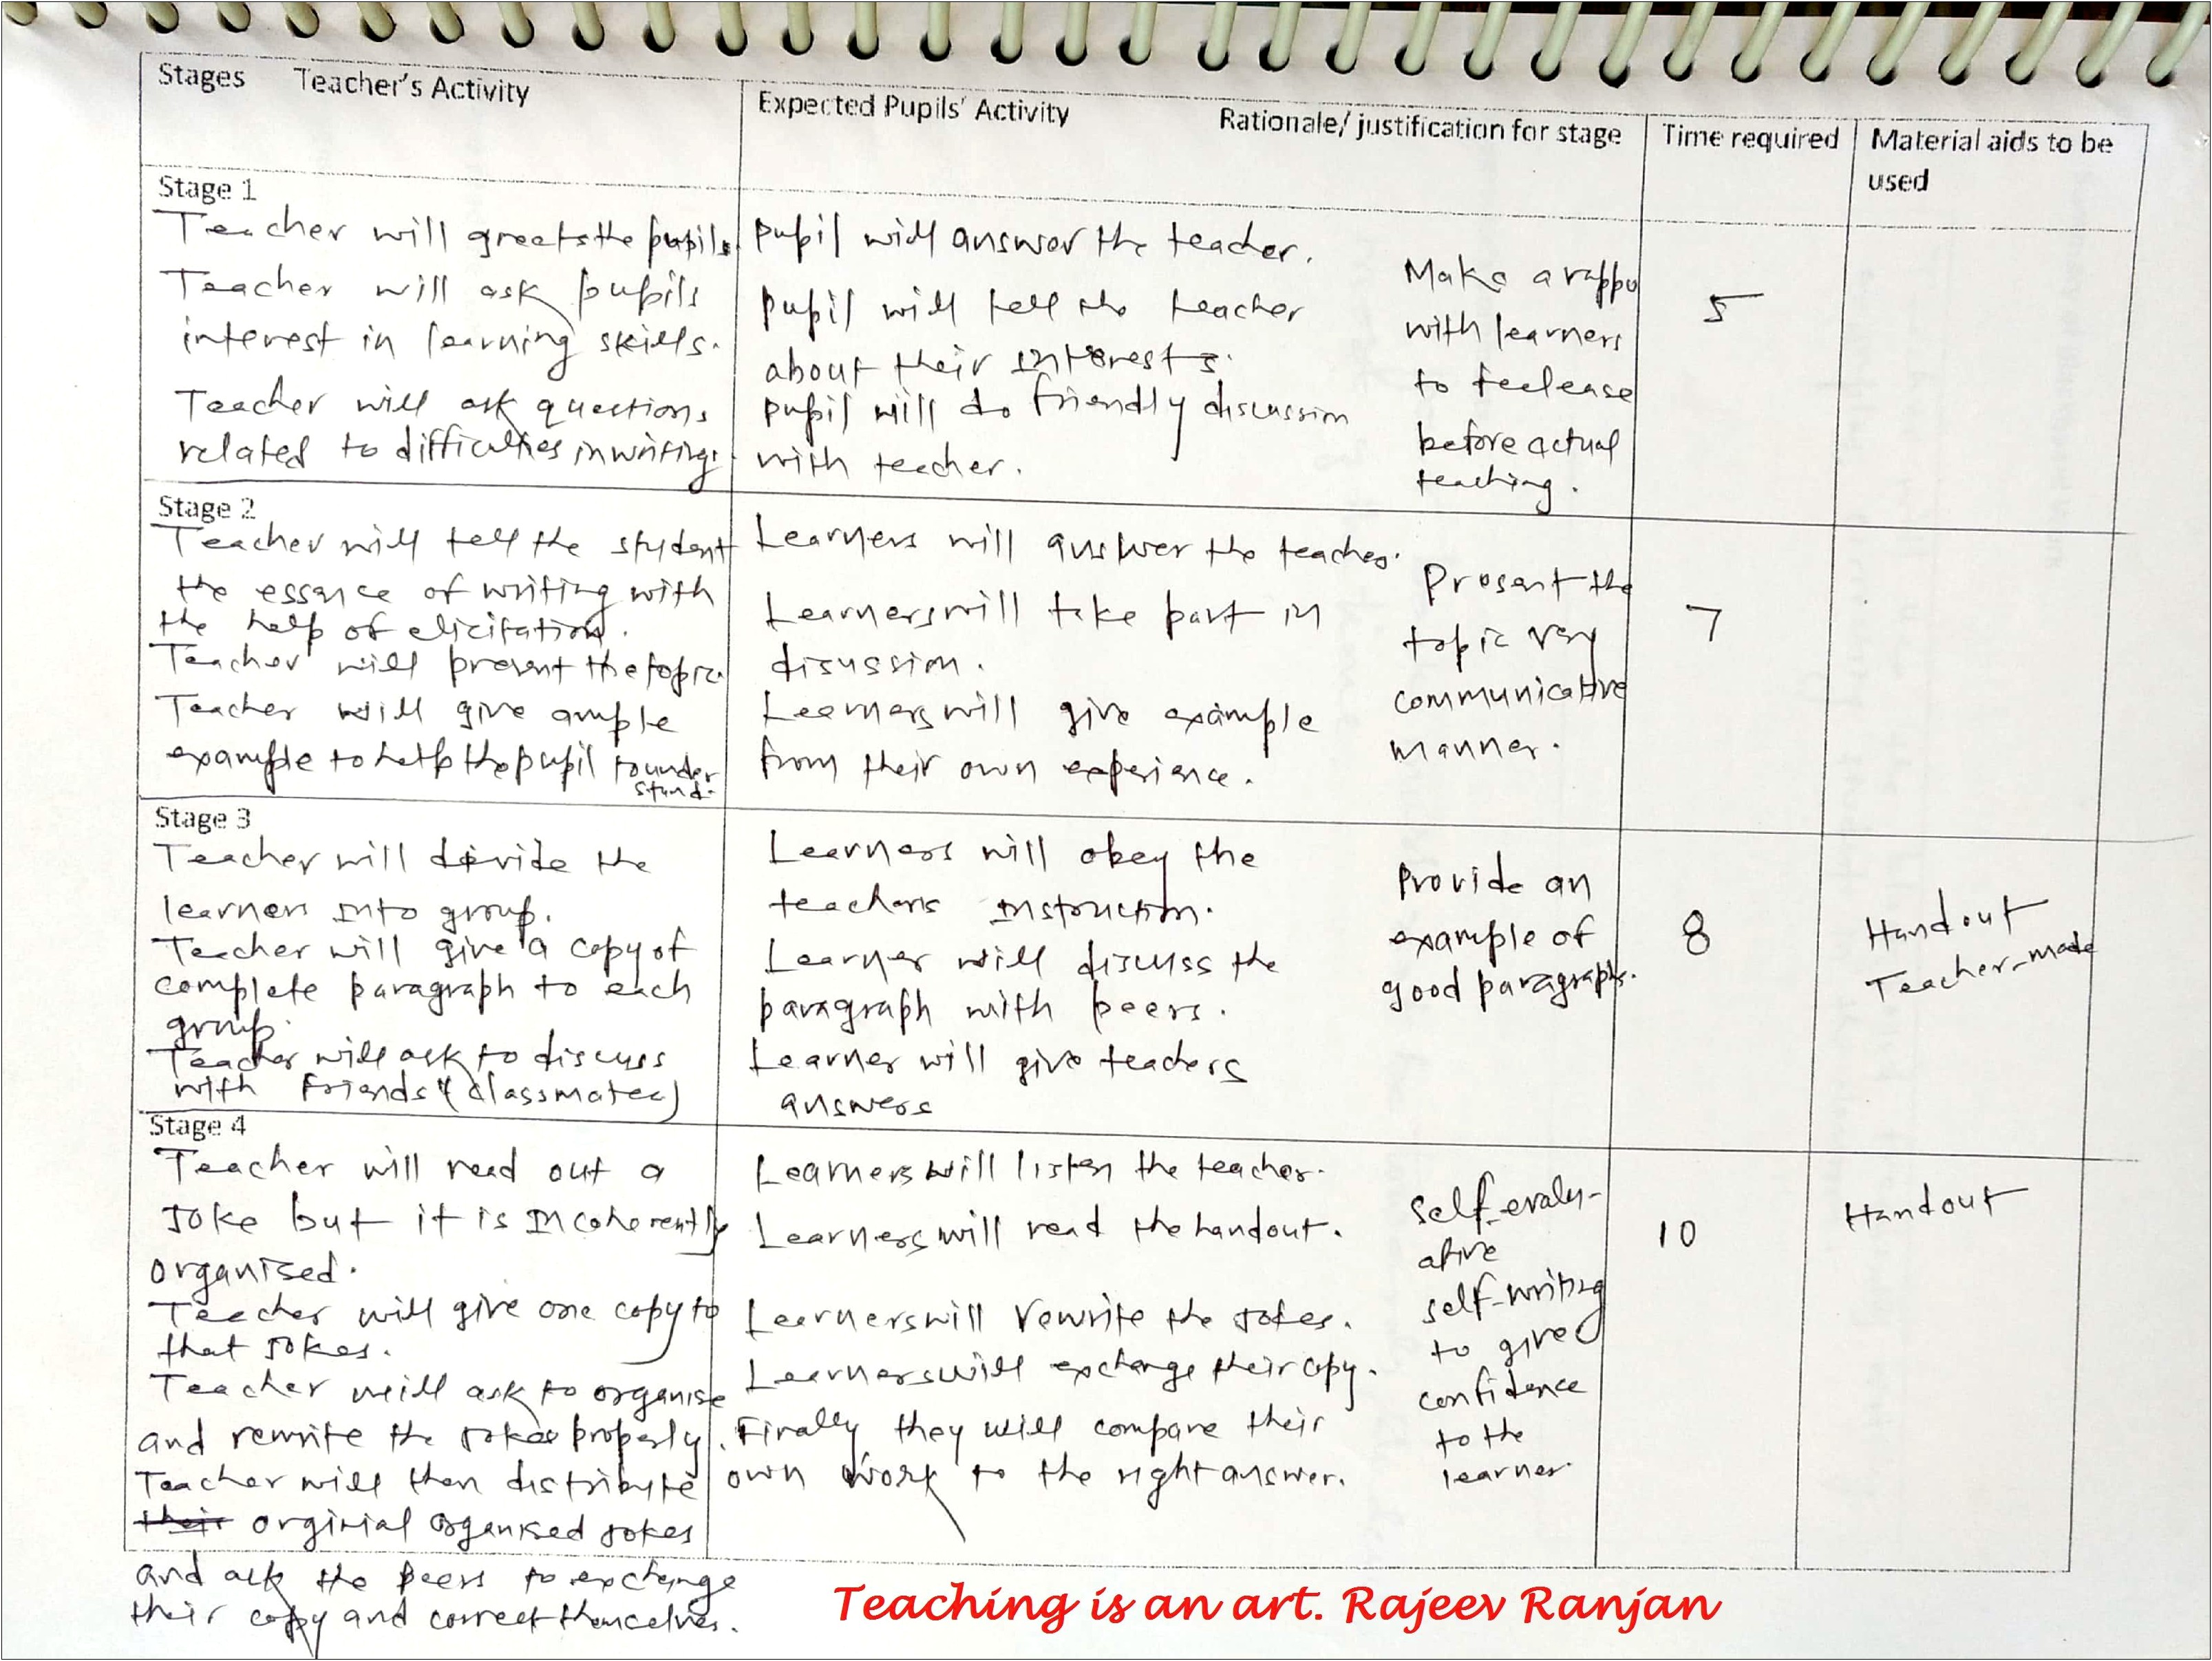 Stages Teacher's Activity
Expected Pupils' Activity
Rationale/ justification for stage
Time required
Material aids to be
used
Stage 1
Teacher will greets the pupils.
Teacher will ask pupils
interest in learning skills.
Teacher will ask questions
related to difficulties in writing.
Pupil will answer the teacher.
Pupil will tell the teacher
about their interests.
Pupil will do friendly discussion
with teacher.
Make a rappo
with learners
to feel ease
before actual
teaching.
5
Stage 2
Teacher will tell the student
the essence of writing with
the help of elicitation.
Teacher will present the topic.
Teacher will give ample
example to help the pupil to under
stand.
Learners will answer the teacher.
Learners will take part in
disussion.
Learners will give example
from their own experience.
Present the
topic very
communicative
manner.
7
Stage 3
Teacher will divide the
learners into group.
Teacher will give a copy of
complete paragraph to each
group.
Teacher will ask to discuss
with friends (classmates)
Learners will obey the
teachers instruction.
Learner will discuss the
paragraph with peers.
Learner will give teachers
answers
Provide an
example of
good paragraph.
8
Handout
Teacher-made
Stage 4
Teacher will read out a
joke but it is incoherently
organised.
Teacher will give one copy to
that jokes.
Teacher will ask to organise
and rewrite the jokes properly.
Teacher will then distribute
their orginial organised jokes
and ask the peers to exchange
their copy and correct themselves.
Learners will listen the teacher.
Learners will read the handout.
Learners will rewrite the jokes.
Learners will exchange their copy.
Finally they will compare their
own work to the right answer.
Self-evalu-
ative
self-writing
to give
confidence
to the
learner.
10
Handout
Teaching is an art. Rajeev Ranjan